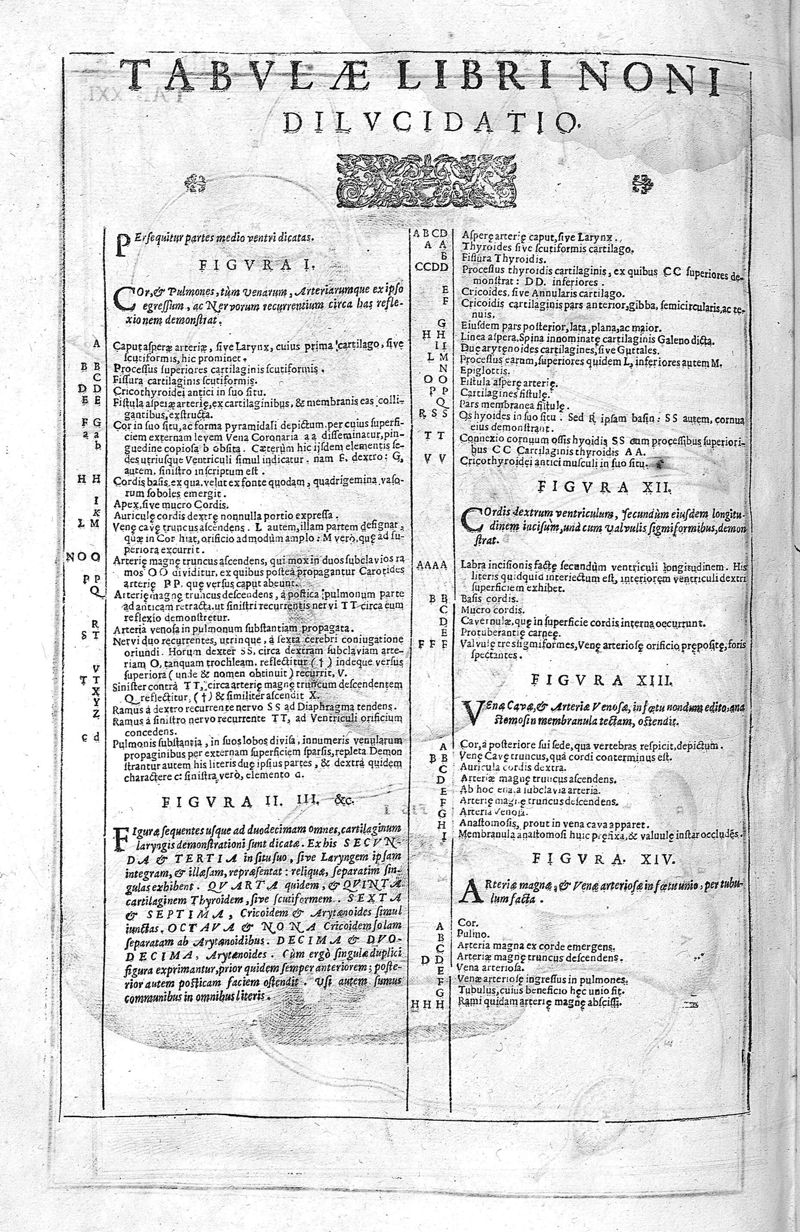 TABVLÆ LIBRI NONI
DILVCIDATIO.
PErsequitur partes medio ventri dicatas.
FIGVRA I.
COr, & Pulmones, tùm Venarum, Arteriarumque ex ipso
egressum, ac Nervorum recurrentium circa has refle-
xionem demonstrat.
A Caput asperæ arteriæ, sive Larynx, cuius prima cartilago, sive
scutiformis, hic prominet.
B B Processus superiores cartilaginis scutiformis.
C Fissura cartilaginis scutiformis.
D D Cricothyroidei antici in suo situ.
E E Fistula asperæ arterię, ex cartilaginibus, & membranis eas colli-
gantibus, exstructa.
F G Cor in suo situ, ac forma pyramidali depictum, per cuius superfi-
a a ciem externam levem Vena Coronaria a a disseminatur, pin-
b guedine copiosa b obsita. Cæterùm hic iisdem elementis se-
des utriusque Ventriculi simul indicatur. nam F. dextro: G,
autem, sinistro inscriptum est.
H H Cordis basis, ex qua, velut ex fonte quodam, quadrigemina vaso-
rum soboles emergit.
I Apex, sive mucro Cordis.
K Auriculę cordis dextrę nonnulla portio expressa.
L M Venę cavę truncus ascendens. L autem, illam partem designat,
quæ in Cor hiat, orificio admodùm amplo: M verò, quę ad su-
periora excurrit.
N O O Arterię magnę truncus ascendens, qui mox in duos subclavios ra
mos O O dividitur, ex quibus posteà propagantur Carotides
P P arterię P P. quę versus caput abeunt.
Q Arterię magnę truncus descendens, à postica pulmonum parte
ad anticam retracta, ut sinistri recurrentis nervi T T circa eum
reflexio demonstretur.
R Arteria venosa in pulmonum substantiam propagata.
S T Nervi duo recurrentes, utrinque, à sexta cerebri coniugatione
oriundi. Horum dexter SS, circa dextram subclaviam arte-
riam O, tanquam trochleam, reflectitur (†) indeque versus
V superiora (unde & nomen obtinuit) recurrit, V.
T T Sinister contrà TT, circa arterię magnę truncum descendentem
X Q reflectitur, (†) & similiter ascendit X.
Y Ramus à dextro recurrente nervo SS ad Diaphragma tendens.
Z Ramus à sinistro nervo recurrente TT, ad Ventriculi orificium
concedens.
c d Pulmonis substantia, in suos lobos divisa, innumeris venularum
propaginibus per externam superficiem sparsis, repleta Demon
strantur autem his literis duę ipsius partes, & dextrà quidem
charactere c: sinistra verò, elemento d.
FIGVRA II. III. &c.
FIguræ sequentes usque ad duodecimam omnes, cartilaginum
laryngis demonstrationi sunt dicatæ. Ex his SECVN-
DA & TERTIA in situ suo, sive Laryngem ipsam
integram, & illæsam, repræsentat: reliquæ, separatim sin-
gulas exhibent. QVARTA quidem, & QVINTA
cartilaginem Thyroidem, sive scutiformem. SEXTA
& SEPTIMA, Cricoidem & Arytænoides simul
iunctas. OCTAVA & NONA Cricoidem solam
separatam ab Arytænoidibus. DECIMA & DVO-
DECIMA, Arytænoides. Cùm ergò singulæ duplici
figura exprimantur, prior quidem semper anteriorem; poste-
rior autem posticam faciem ostendit. Usi autem sumus
communibus in omnibus literis.
A B C D Asperę arterię caput, sive Larynx.
A A Thyroides sive scutiformis cartilago.
B Fissura Thyroidis.
CCDD Processus thyroidis cartilaginis, ex quibus CC superiores de-
monstrat: DD. inferiores.
E Cricoides, sive Annularis cartilago.
F Cricoidis cartilaginis pars anterior, gibba, semicircularis, ac te-
nuis.
G Eiusdem pars posterior, lata, plana, ac maior.
H H Linea aspera, Spina innominatę cartilaginis Galeno dicta.
I I Duę arytenoides cartilagines, sive Guttales.
L M Processus earum, superiores quidem L, inferiores autem M.
N Epiglottis.
O O Fistula asperę arterię.
P P Cartilagines fistulę.
Q Pars membranea fistulę.
R S S Os hyoides in suo situ. Sed R ipsam basin: SS autem, cornua
eius demonstrant.
T T Connexio cornuum ossis hyoidis SS cum processibus superiori-
bus CC Cartilaginis thyroidis AA.
V V Cricothyroidei antici musculi in suo situ.
FIGVRA XII.
COrdis dextrum ventriculum, secundùm eiusdem longitu-
dinem incisum, unà cum Valvulis sigmiformibus, demon
strat.
AAAA Labra incisionis factę secundùm ventriculi longitudinem. His
literis quidquid interiectum est, interiorem ventriculi dextri
superficiem exhibet.
B B Basis cordis.
C Mucro cordis.
D Cavernulæ, quę in superficie cordis interna occurrunt.
E Protuberantię carneę.
F F F Valvulę tres sigmiformes, Venę arteriosę orificio prępositę, foris
spectantes.
FIGVRA XIII.
VEnæ Cavæ, & Arteriæ Venosæ, in fœtu nondum edito: ana
stomosin membranula tectam, ostendit.
A Cor, à posteriore sui sede, qua vertebras respicit, depictum.
B B Venę Cavę truncus, quà cordi conterminus est.
C Auricula cordis dextra.
D Arteriæ magnę truncus ascendens.
E Ab hoc enata subclavia arteria.
F Arterię magnę truncus descendens.
G Arteria venosa.
H Anastomosis, prout in vena cava apparet.
I Membranula anastomosi huic pręfixa, & valvulę instar occludens.
FIGVRA. XIV.
ARteriæ magnæ, & Venæ arteriosæ in fœtu unio, per tubu-
lum facta.
A Cor.
B Pulmo.
C Arteria magna ex corde emergens.
D D Arteriæ magnę truncus descendens.
E Vena arteriosa.
F Venæ arteriosę ingressus in pulmones.
G Tubulus, cuius beneficio hęc unio fit.
H H H Rami quidam arterię magnę abscissi.